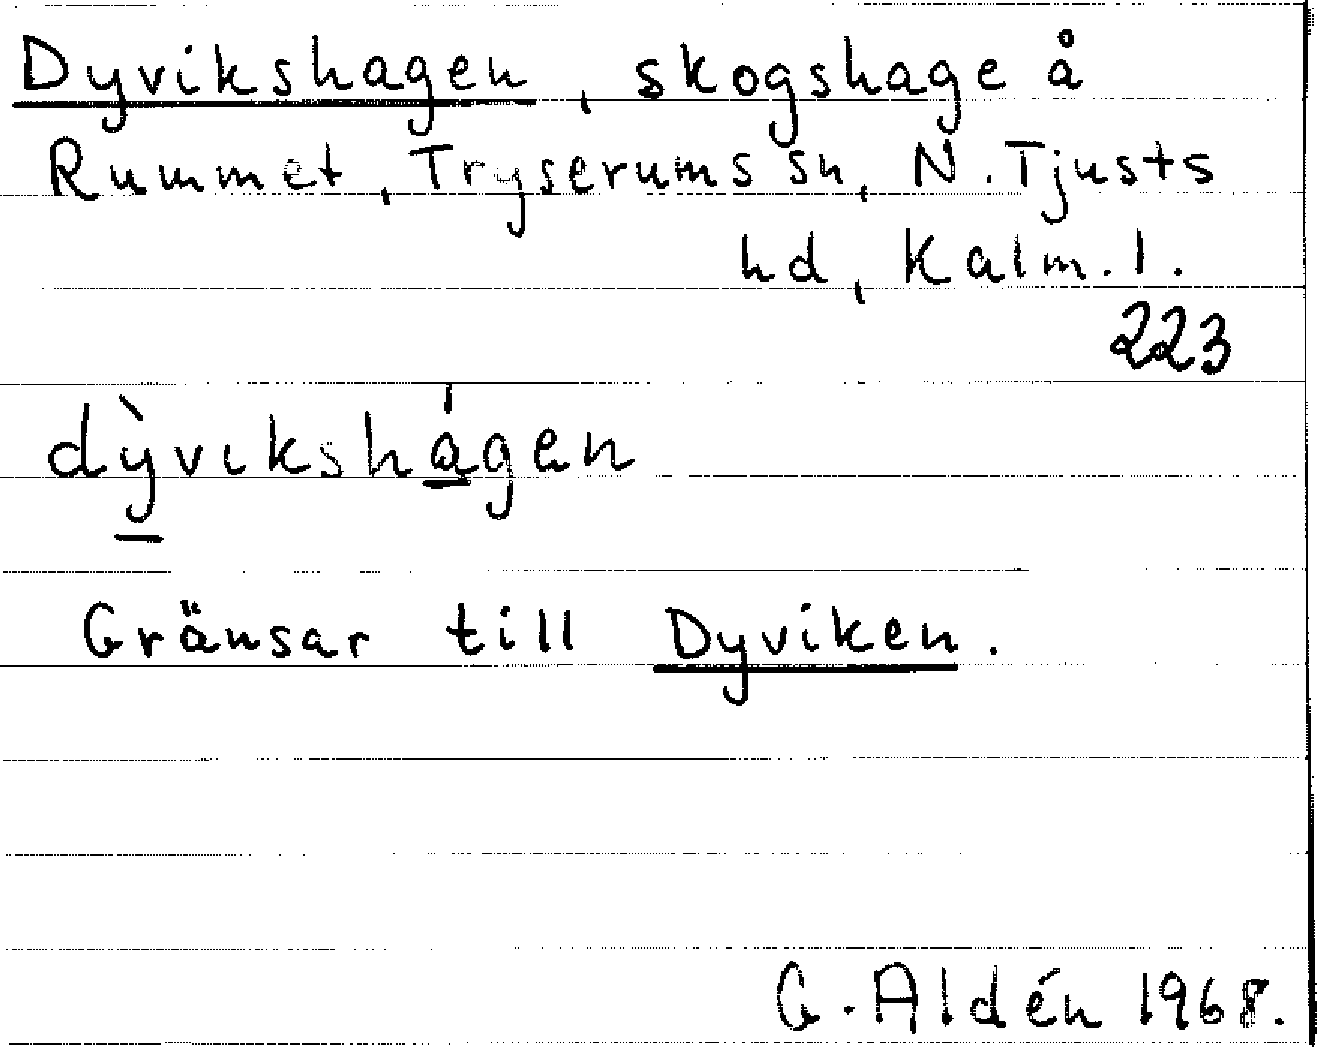 Dyvikshagen, skogshage å
Rummet, Tryserums sn, N. Tjusts
hd, Kalm. l.
223
dỳ̲vıkshá̲gen
Gränsar till Dyviken.
G. Aldén 1968.